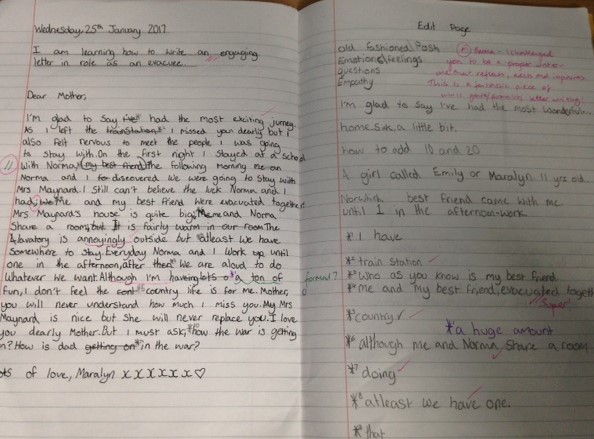 Wednesday 25th January 2017
I am learning how to write an engaging
letter in role as an evacuee.
Dear Mother,
I'm glad to say I've had the most exciting jurney.
As I left the trainstations I missed you dearly but I
also felt nervous to meet the people I was going
to stay with. On the first night I stayed at a school
with Norma (my best friend) the following morning me an
Norma and I to discovered we were going to stay with
Mrs Maynard. I still can't believe the luck Norma and I
had, Me and my best friend were evacuated together
Mrs Maynard's house is quite big, Me and Norma
Share a room, but It is fairly warm in our room. The
lavatory is annoyingly outside but atleast we have
Somewhere to stay. Everyday Norma and I work up until
one in the afternoon, after there we are aloud to do
Whatever we want. Although I'm having lots of a ton of
fun, I don't feel the country life is for me. Mother,
you will never understand how much I miss you. My Mrs
Maynard is nice but She will never replace you. I love
you dearly Mother. But I must ask, how the war is getting
n? How is dad getting on in the war?
ots of love, Maralyn x x x x x x
Edit Page
Old fashioned Posh
Emotions/feelings
Questions
Empathy
I'm glad to say I've had the most wonderful
home sick a little bit.
how to add 10 and 20
A girl called Emily or Maralyn 11 yrs old
Norwich best friend came with me
until 1 in the afternoon - work
* I have
* train station
formal?
* Who as you know is my best friend
* me and my best friend, evacuated togeth
Super
*5 country
* a huge amount
*6 although me and Norma share a room
*7 doing
*8 atleast we have one
*9 that